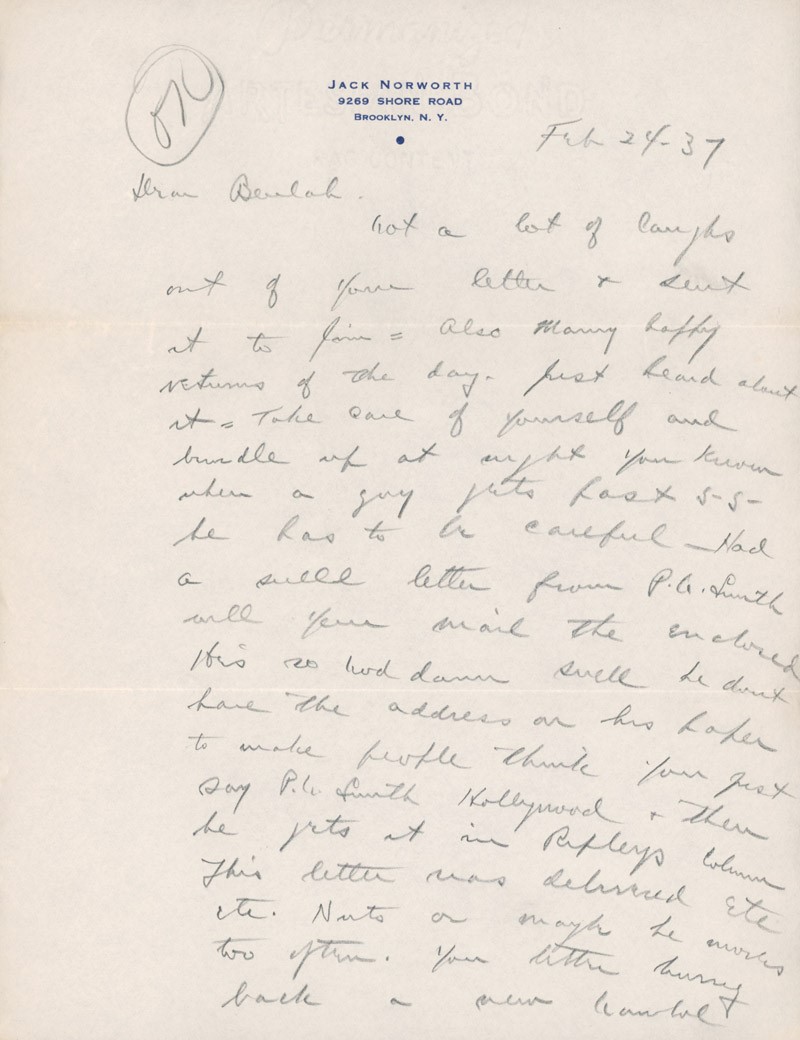 OK
JACK NORWORTH
9269 SHORE ROAD
BROOKLYN, N. Y.
Feb 24-37
Dear Beulah.
Got a lot of laughs
out of your letter & sent
it to Jim = Also Many happy
returns of the day. Just heard about
it = Take care of yourself and
bundle up at night you know
when a guy gets past 5-5-
he has to be careful - Had
a swell letter from P.G. Smith
will you mail the enclosed
He's so God damn swell he dont
have the address on his paper
to make people think you just
say P.G. Smith Hollywood & then
he gets it in Ripleys Column
This letter was delivered Etc
etc. Nuts or maybe he moves
too often. You better hurry
back a new